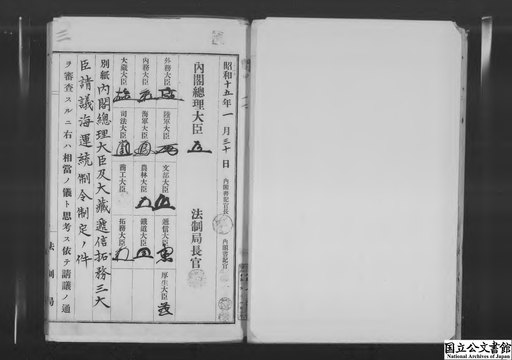 昭和十五年一月三十日
内閣書記官長
内閣書記官
内閣總理大臣
法制局長官
外務大臣
陸軍大臣
文部大臣
遞信大臣
厚生大臣
内務大臣
海軍大臣
農林大臣
鐵道大臣
大藏大臣
司法大臣
商工大臣
拓務大臣
別紙内閣總理大臣及大藏遞信拓務三大
臣請議海運統制令制定ノ件
ヲ審査スルニ右ハ相當ノ儀ト思考ス依テ請議ノ通
法制局
三
国立公文書館
National Archives of Japan